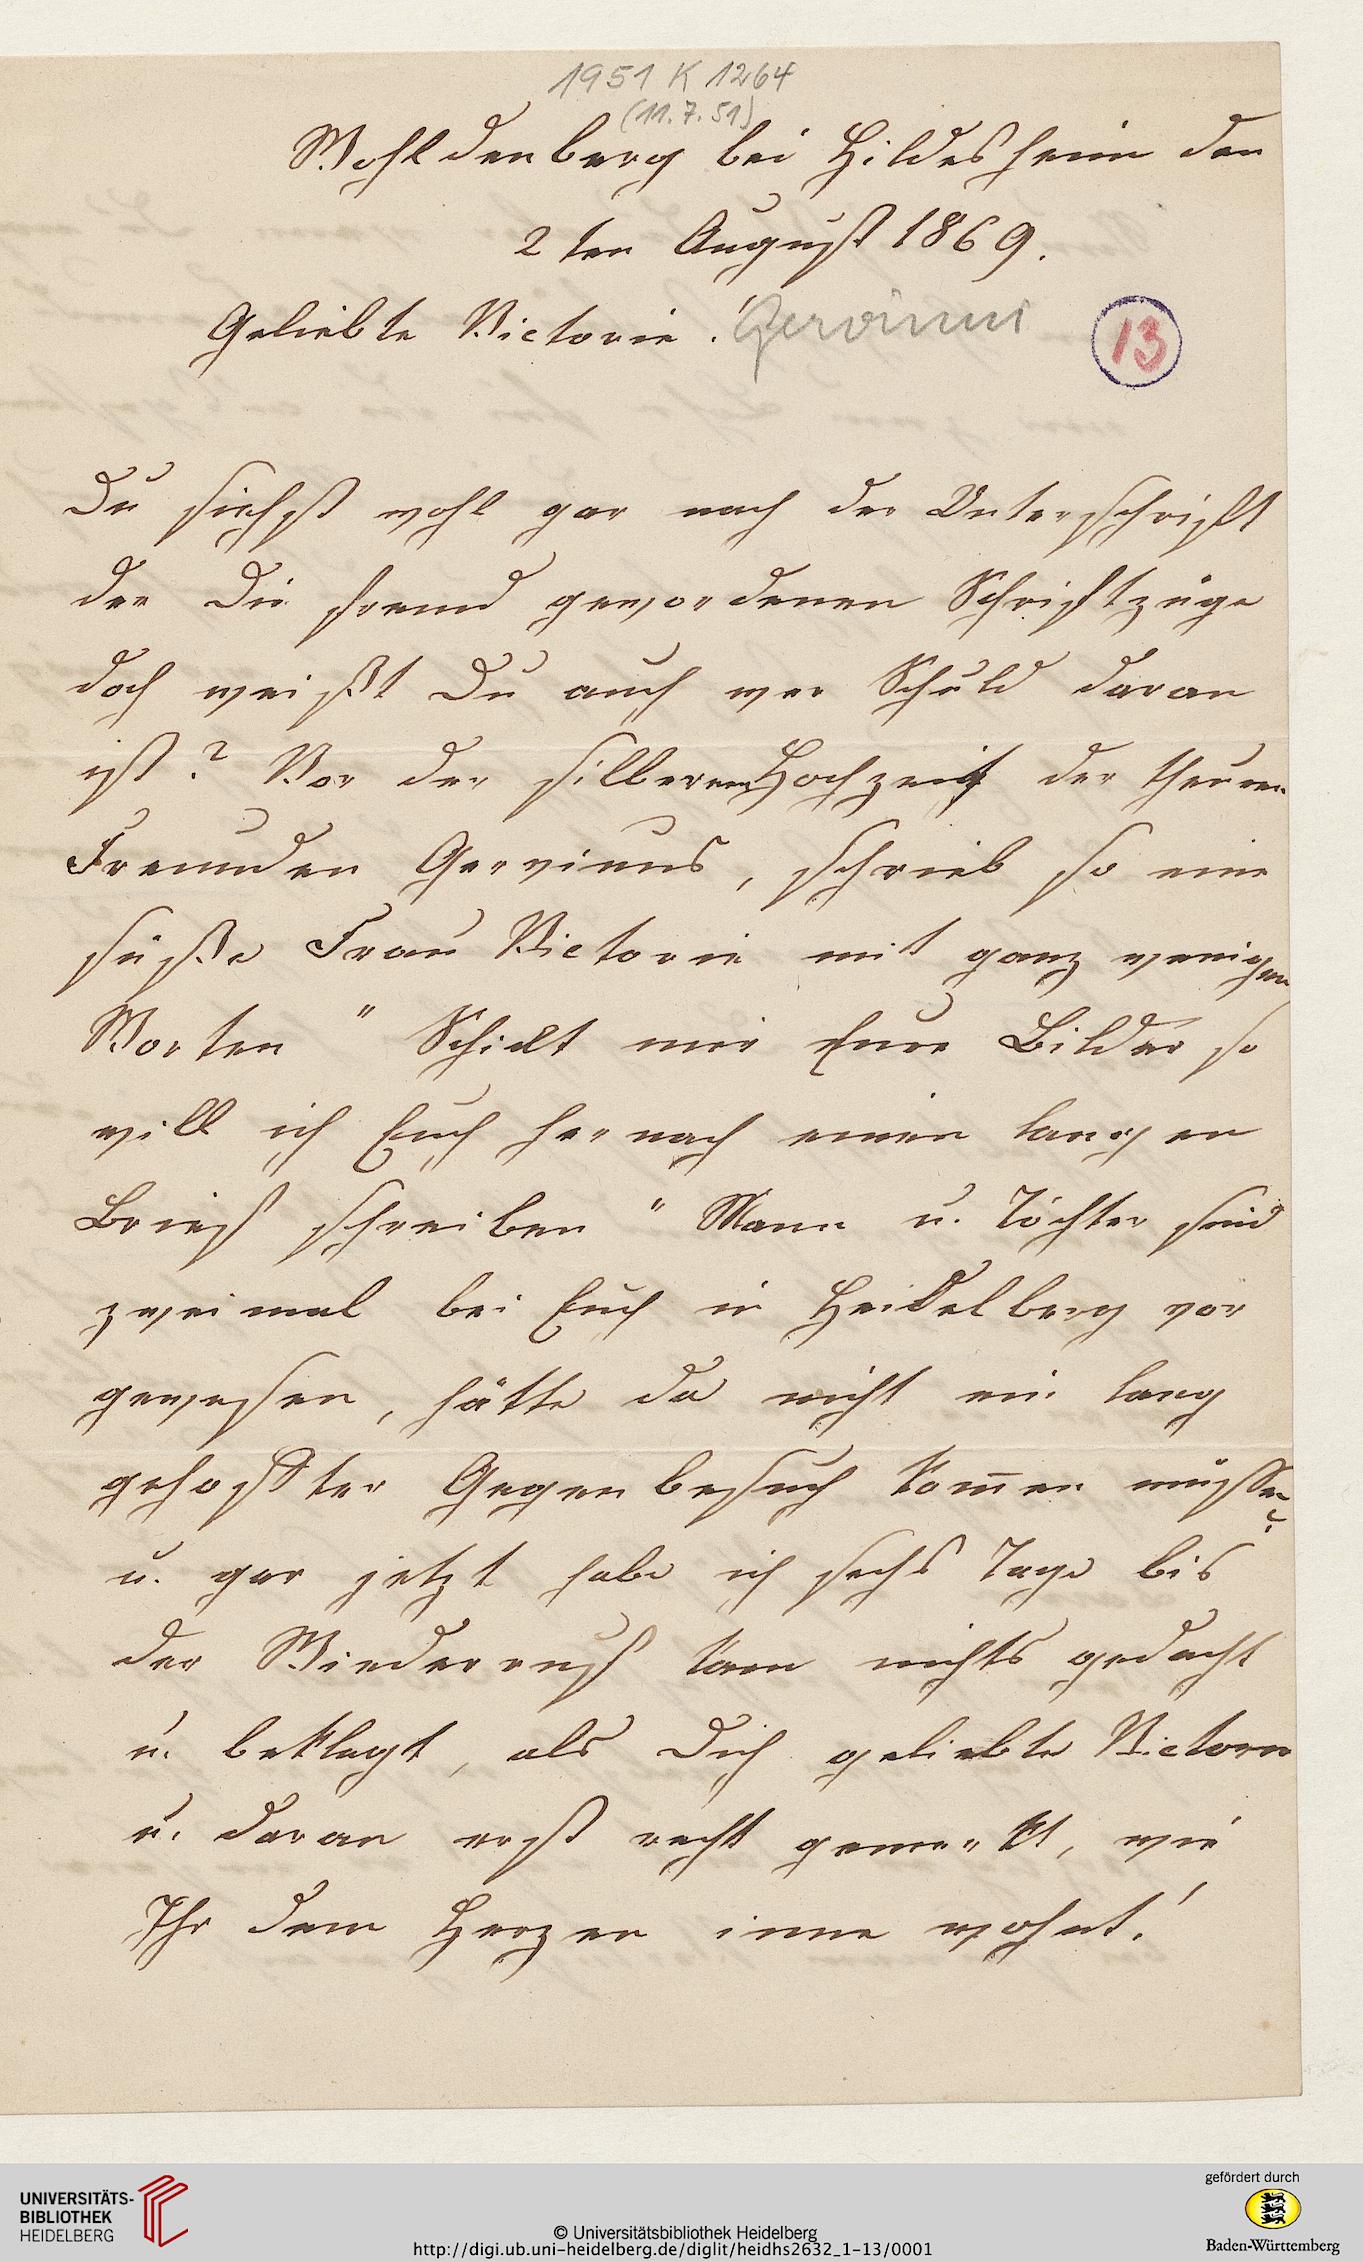 1951 K 1264
(11.7.51)
Wohldenberg bei Hildesheim den
2ten August 1869.
Geliebte Victorie! Gervinus
13
Du siehst wohl gar nach der Unterschrift
der Dir fremd gewordenen Schriftzüge
doch weißt Du auch wer Schuld daran
ist? Vor der silbernen Hochzeit der theuren
Freunden Gervinus, schrieb so eine
süße Frau Victorie mit ganz wenigen
Worten " Schickt mir Eure Bilder so
will ich Euch hernach einen langen
Brief schreiben " Mann u. Töchter sind
zweimal bei Euch in Heidelberg vor
gewesen, hätte da nicht ein lang
gehoffter Gegenbesuch kom̅en müssen?
u. gar jetzt habe ich sechs Tage bis
der Wiederruf kam nichts gedacht
u. beklagt, als Dich geliebte Victorie
u. daran erst recht gemerkt, wie
Ihr dem Herzen inne wohnt!
UNIVERSITÄTS-
BIBLIOTHEK
HEIDELBERG
© Universitätsbibliothek Heidelberg
http://digi.ub.uni-heidelberg.de/diglit/heidhs2632_1-13/0001
gefördert durch
Baden-Württemberg